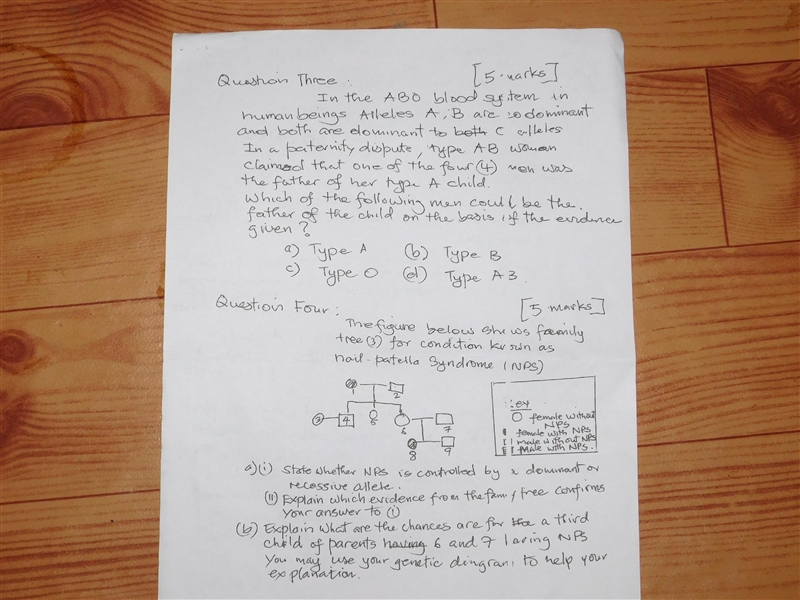 Question Three: [5 marks]
In the ABO blood system in
human beings Alleles A, B are co dominant
and both are dominant to both C alleles
In a paternity dispute, type AB woman
claimed that one of the four (4) men was
the father of her type A child.
Which of the following men could be the
father of the child on the basis of the evidence
given?
a) Type A (b) Type B
c) Type O (d) Type AB
Question Four: [5 marks]
The figure below shows family
tree (3) for condition known as
nail-patella Syndrome (NPS)
1 2
3 4 5 6 7
8 9
key
female without
NPS
female with NPS
male without NPS
male with NPS.
a)(i) State whether NPS is controlled by a dominant or
recessive allele.
(ii) Explain which evidence from the family tree confirms
your answer to (i)
(b) Explain what are the chances are for the a third
child of parents having 6 and 7 having NPS
You may use your genetic diagram to help your
explanation.